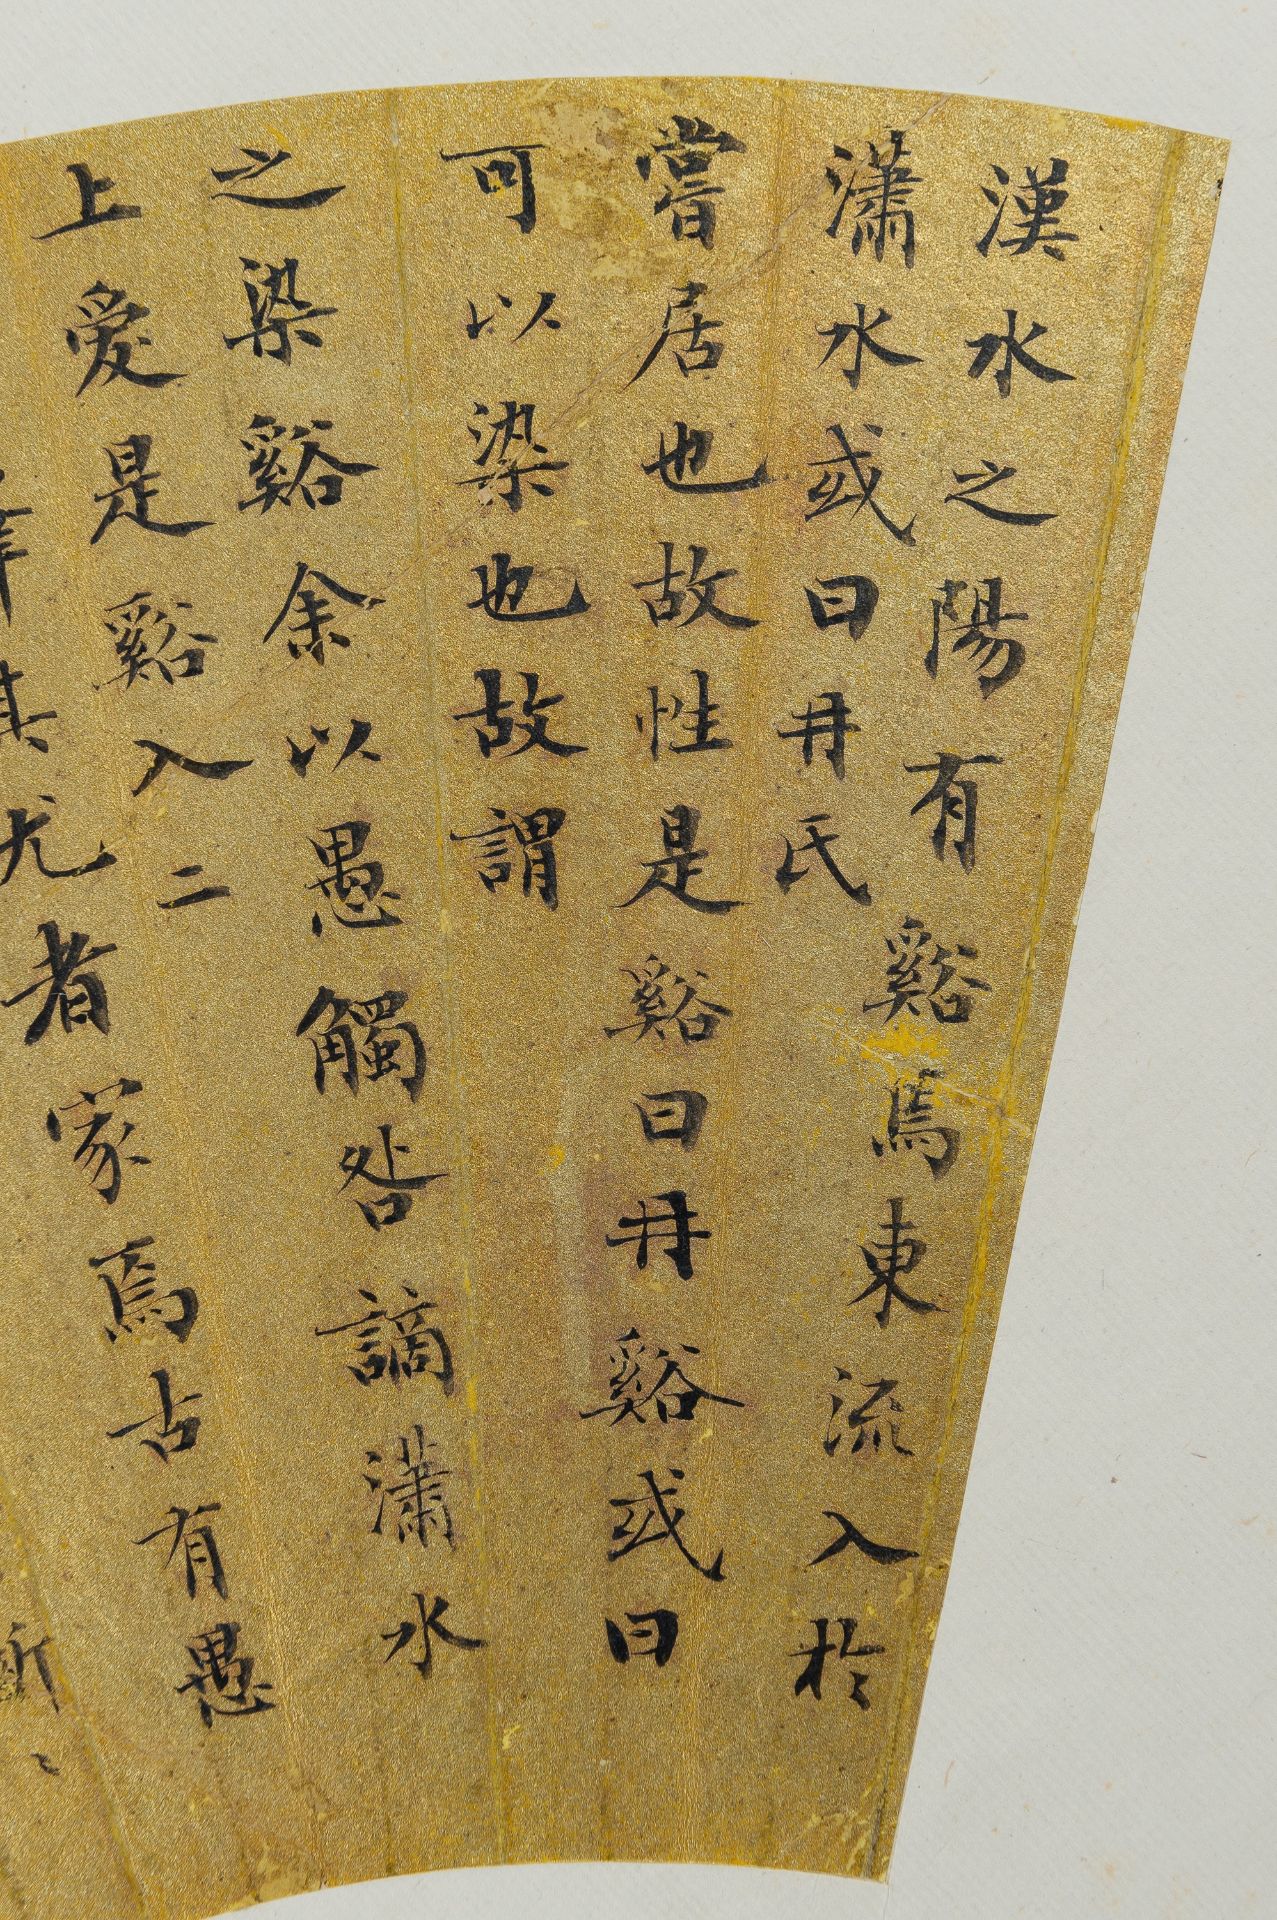 漢水之陽有谿焉東流入於
瀟水或曰冉氏
嘗居也故性是谿曰冉谿或曰
可以染也故謂
之染谿余以愚觸咎謫瀟水
上愛是谿入二
其尤者家焉古有愚